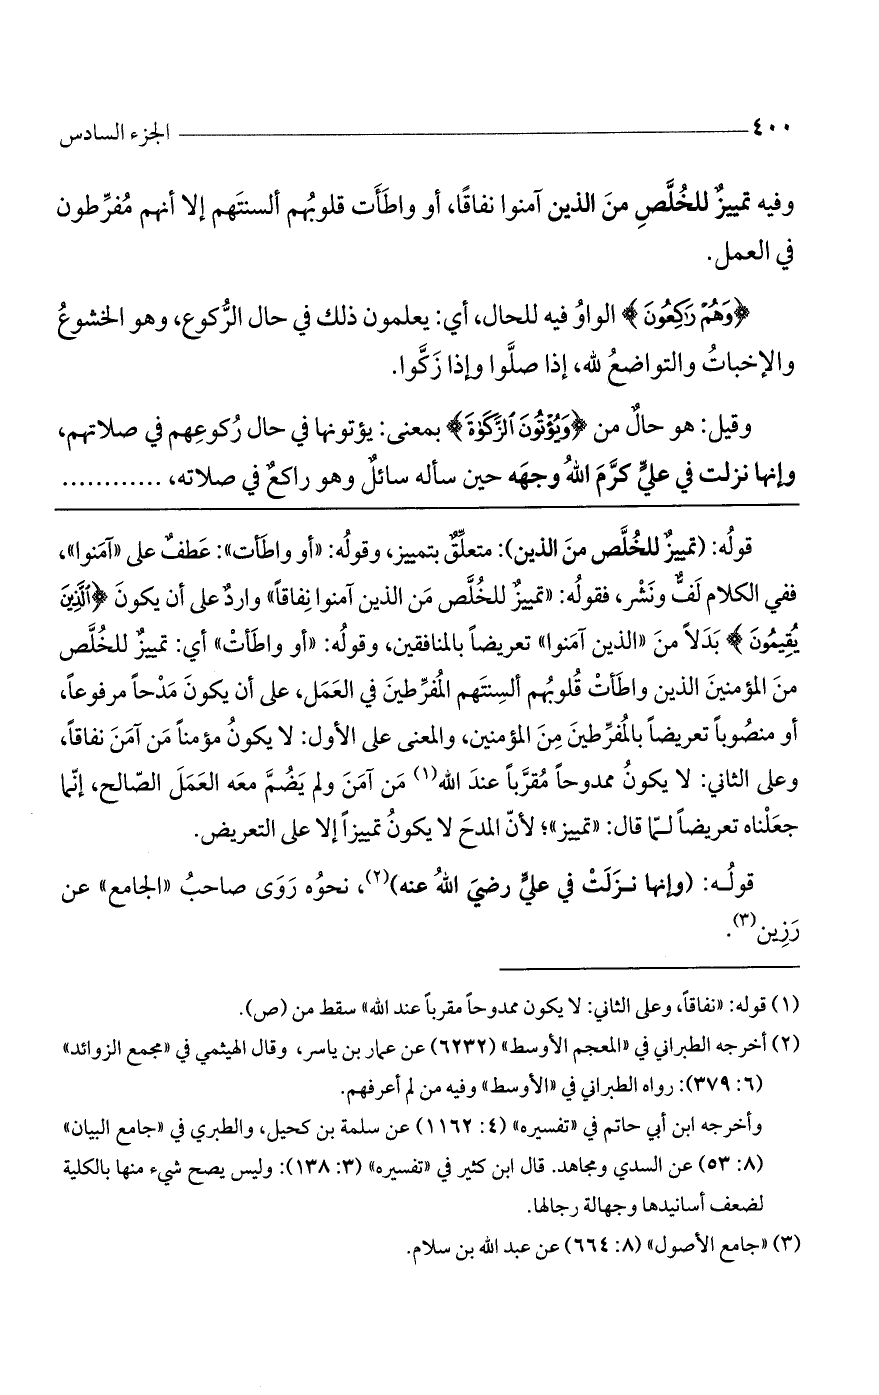 ٤٠٠ الجزء السادس
وفيه تمييزٌ للخُلَّصِ منَ الذين آمنوا نفاقًا، أو واطَأَت قلوبُهم ألسنتَهم إلا أنهم مُفرِّطون
في العمل.
﴿وَهُمْ رَاكِعُونَ﴾ الواوُ فيه للحال، أي: يعلمون ذلك في حال الرُّكوع، وهو الخشوعُ
والإخباتُ والتواضعُ لله، إذا صلَّوا وإذا زَكَّوا.
وقيل: هو حالٌ من ﴿وَيُؤْتُونَ ٱلزَّكَوٰةَ﴾ بمعنى: يؤتونها في حال رُكوعِهم في صلاتهم،
وإنها نزلت في عليٍّ كرَّمَ اللهُ وجهَه حين سأله سائلٌ وهو راكعٌ في صلاته، ............
قولُه: (تمييزٌ للخُلَّص منَ الذين): متعلِّقٌ بتمييز، وقولُه: «أو واطَأَت»: عَطفٌ على «آمَنوا»،
ففي الكلام لَفٌّ ونَشْر، فقولُه: «تمييزٌ للخُلَّص مَن الذين آمنوا نِفاقاً» واردٌ على أن يكونَ ﴿ٱلَّذِينَ
يُقِيمُونَ﴾ بَدَلاً منَ «الذين آمَنوا» تعريضاً بالمنافقين، وقولُه: «أو واطَأَتْ» أي: تمييزٌ للخُلَّص
منَ المؤمنينَ الذين واطَأَتْ قُلوبُهم ألسِنتَهم المُفرِّطينَ في العَمَل، على أن يكونَ مَدْحاً مرفوعاً،
أو منصُوباً تعريضاً بالمُفرِّطينَ مِنَ المؤمنين، والمعنى على الأول: لا يكونُ مؤمناً مَن آمَنَ نفاقاً،
وعلى الثاني: لا يكونُ ممدوحاً مُقرَّباً عندَ الله(١) مَن آمَنَ ولم يَضُمَّ معَه العَمَلَ الصّالح، إنّما
جعَلْناه تعريضاً لـمّا قال: «تمييز»؛ لأنّ المدحَ لا يكونُ تمييزاً إلا على التعريض.
قولُـه: (وإنها نـزَلَتْ في عليٍّ رضيَ اللهُ عنه)(٢)، نحوُه رَوَى صاحبُ «الجامع» عن
رَزِين(٣).
(١) قوله: «نفاقاً، وعلى الثاني: لا يكون ممدوحاً مقرباً عند الله» سقط من (ص).
(٢) أخرجه الطبراني في «المعجم الأوسط» (٦٢٣٢) عن عمار بن ياسر، وقال الهيثمي في «مجمع الزوائد»
(٦: ٣٧٩): رواه الطبراني في «الأوسط» وفيه من لم أعرفهم.
وأخرجه ابن أبي حاتم في «تفسيره» (٤: ١١٦٢) عن سلمة بن كحيل، والطبري في «جامع البيان»
(٨: ٥٣) عن السدي ومجاهد. قال ابن كثير في «تفسيره» (٣: ١٣٨): وليس يصح شيء منها بالكلية
لضعف أسانيدها وجهالة رجالها.
(٣) «جامع الأصول» (٨: ٦٦٤) عن عبد الله بن سلام.